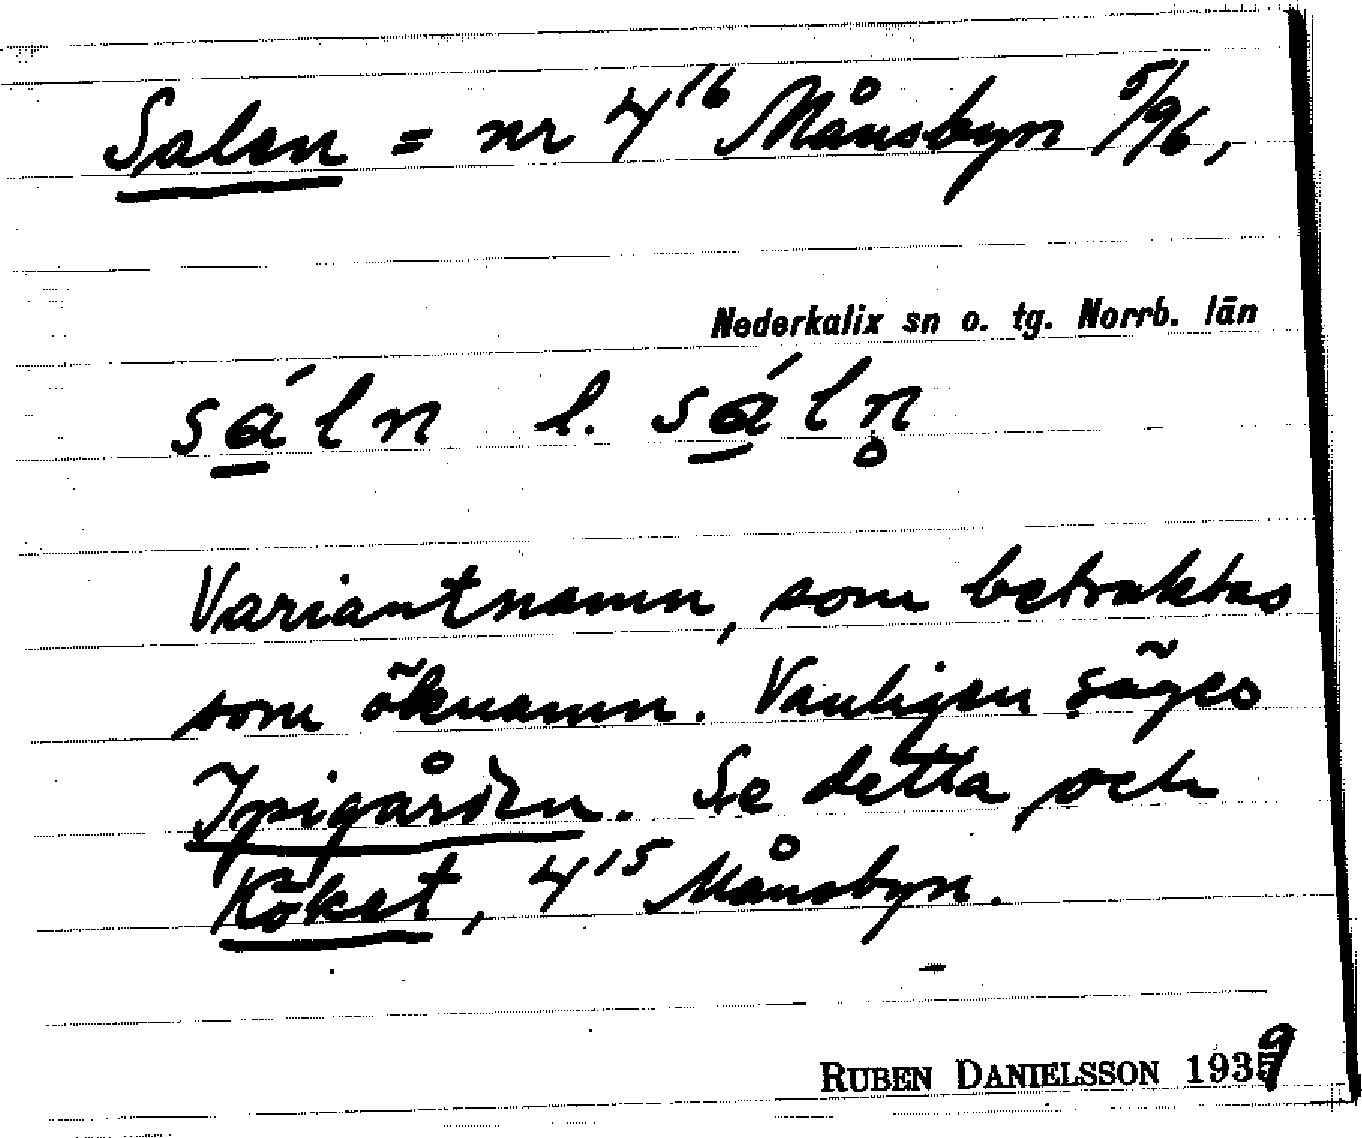 Salen = nr 4¹⁶ Månsbyn 5/96,
Nederkalix sn o. tg. Norrb. län
sá̱ln l. sá̱ln̥
Variantnamn, som betraktas
som öknamn. Vanligen säges
Ipigården. Se detta och
Köket, 4¹⁵ Månsbyn.
RUBEN DANIELSSON 1939